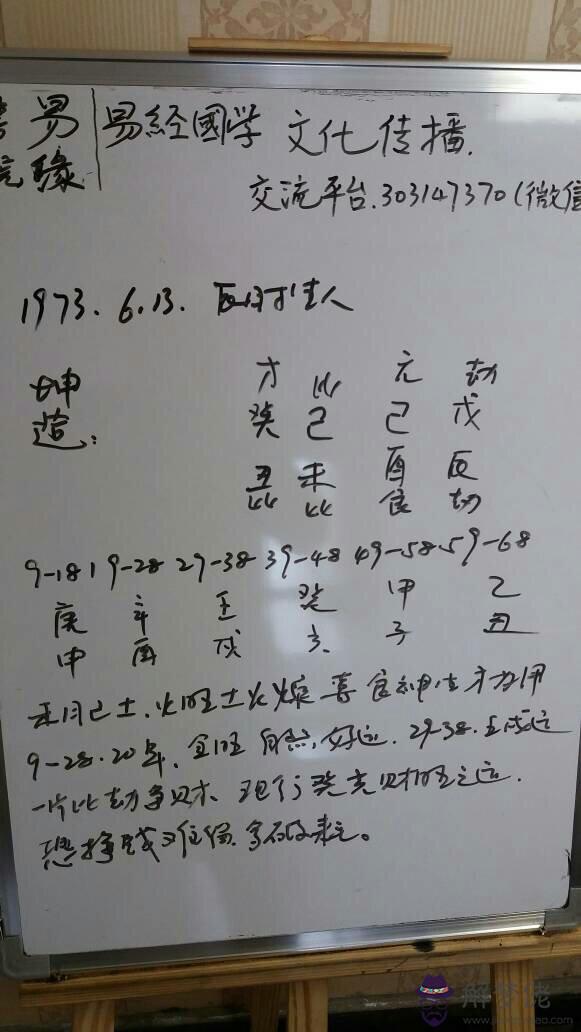 易 易經國学 文化传播.
缘
交流平台.303147370(微信
1973.6.13. 辰时生人
坤 才 比 元 劫
造: 癸 己 己 戊
丑 未 酉 辰
比 比 食 劫
9-18 19-28 29-38 39-48 49-58 59-68
庚 辛 壬 癸 甲 乙
申 酉 戌 亥 子 丑
未月己土.火旺土燥 喜食神生才为用
9-28.20年.金旺 好运.29-38.壬戌运
一片比劫争财.现行癸亥财旺之运.
恐挣钱
解梦佬